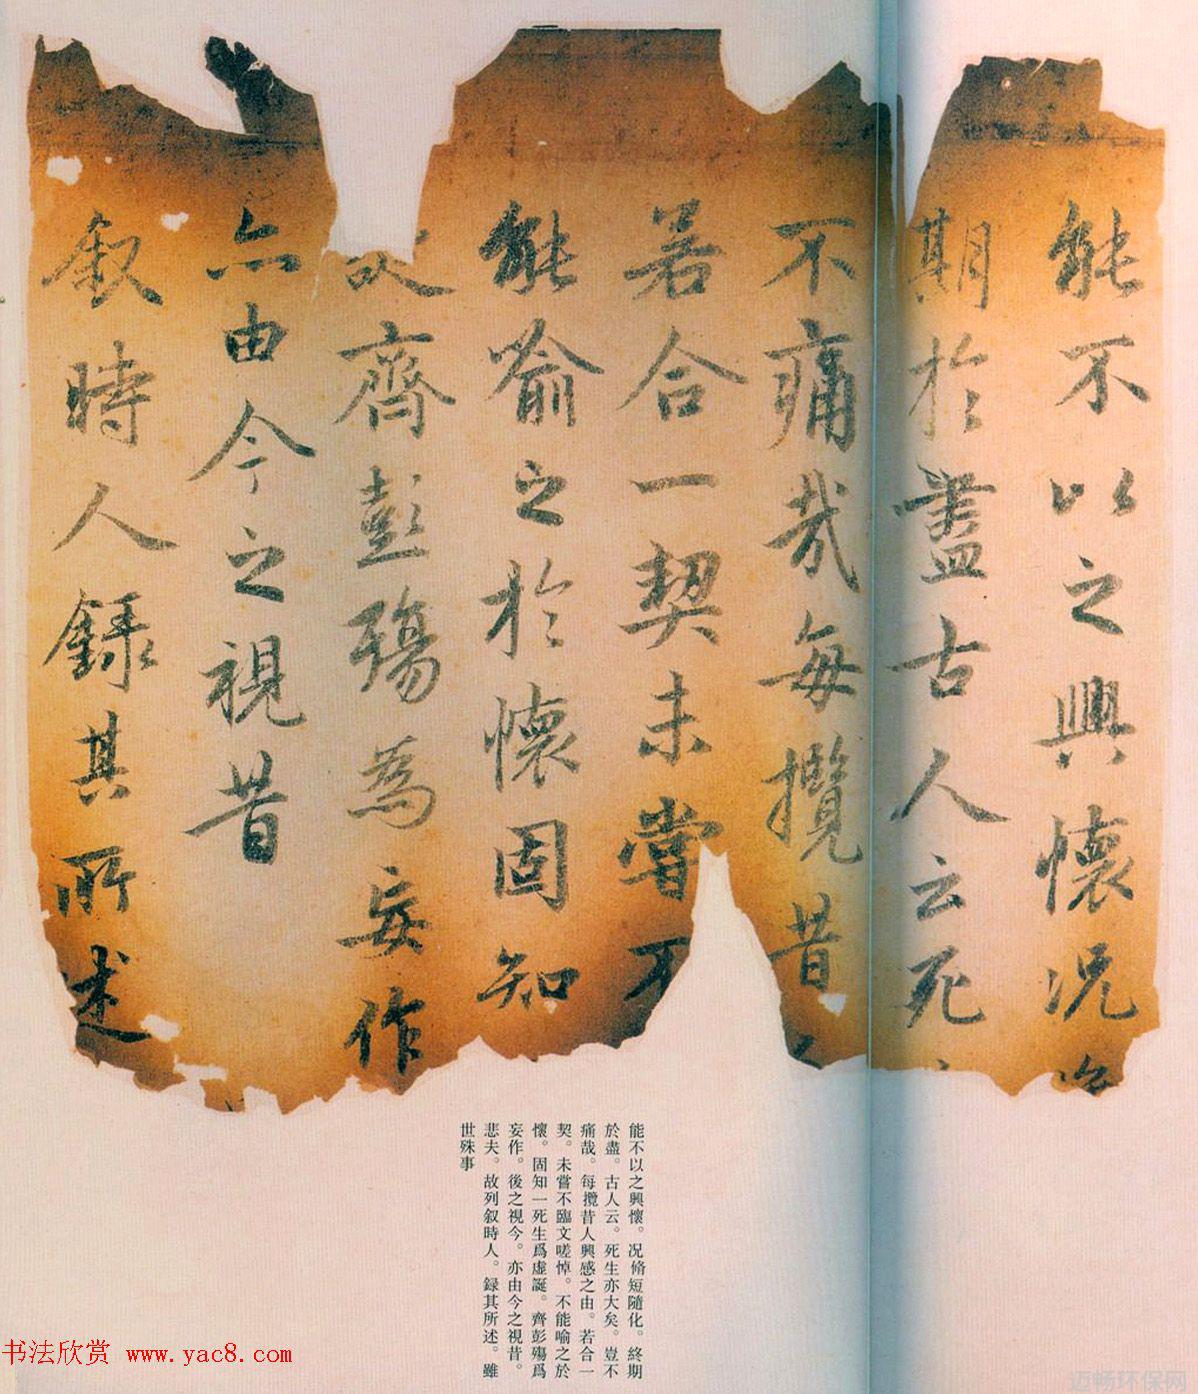 能不以之興懷况
期於盡古人云死
不痛哉每攬昔
若合一契未嘗不
能喻之於懷固知
齊彭殤為妄作
亦由今之視昔
叙時人錄其所述
能不以之興懷。况脩短隨化。終期
於盡。古人云。死生亦大矣。豈不
痛哉。每攬昔人興感之由。若合一
契。未嘗不臨文嗟悼。不能喻之於
懷。固知一死生爲虛誕。齊彭殤爲
妄作。後之視今。亦由今之視昔。
悲夫。故列叙時人。録其所述。雖
世殊事
书法欣赏 www.yac8.com
迈畅环保网